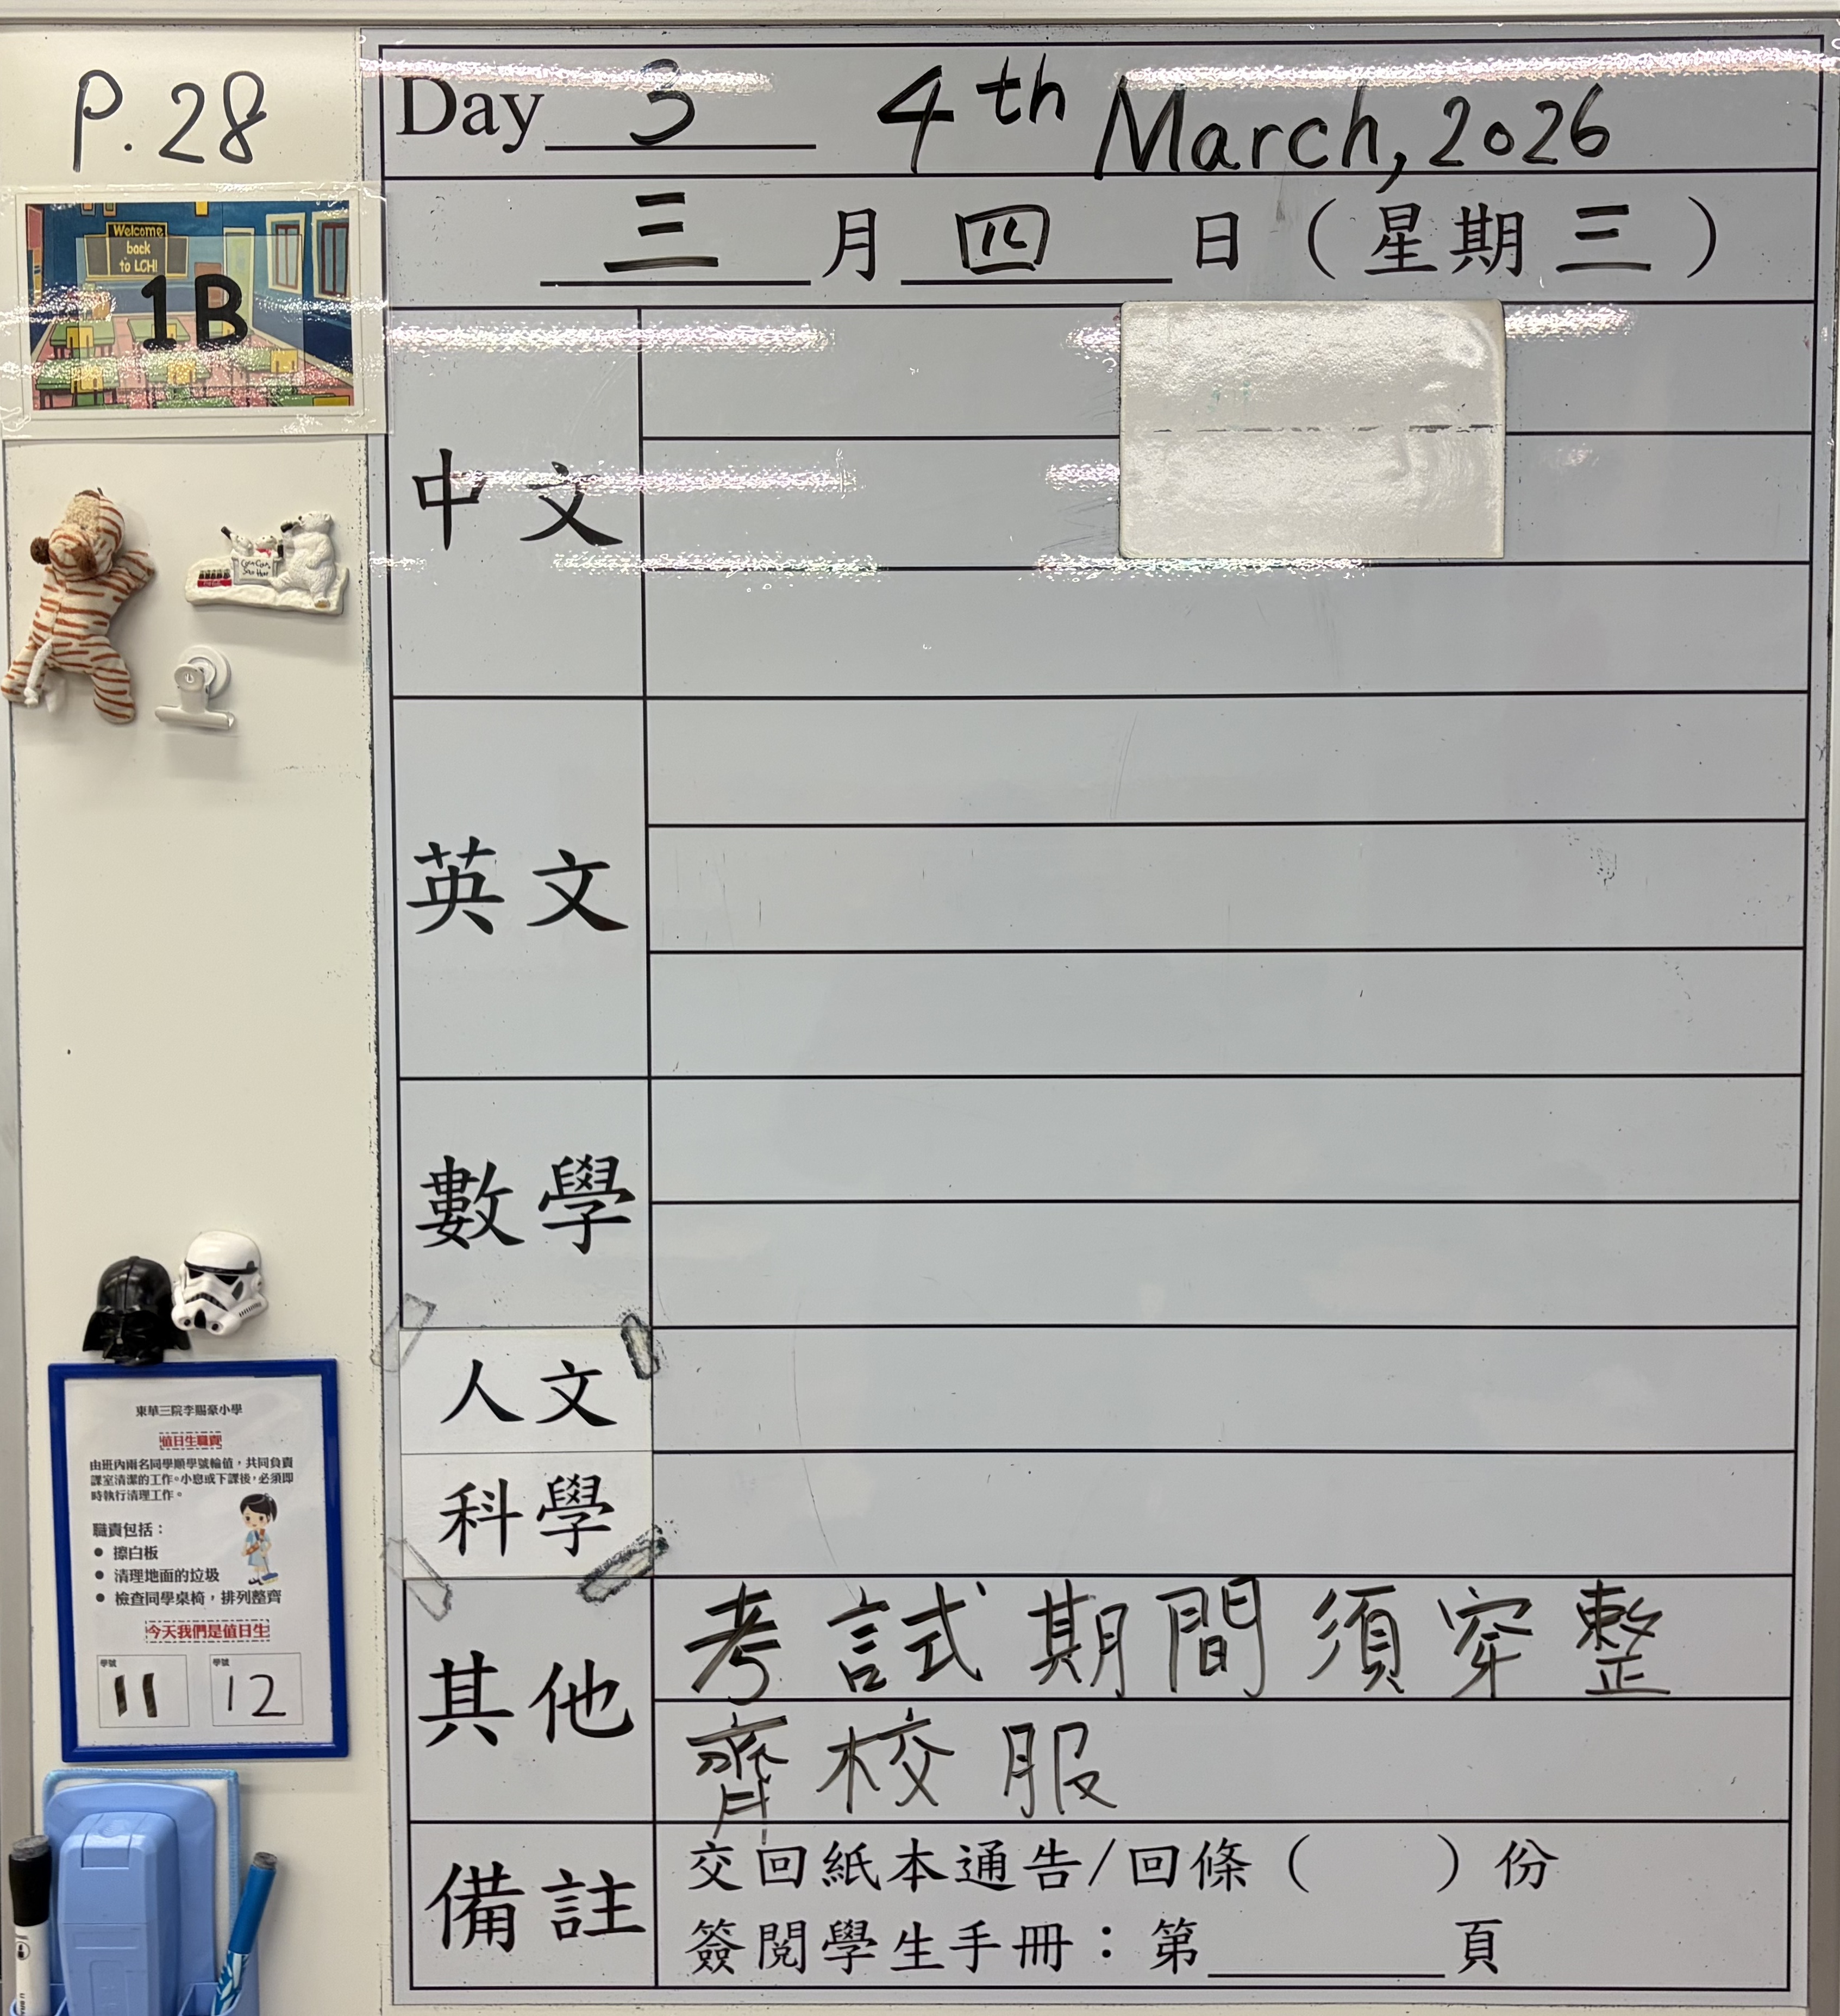 P.28
Day 3 4th March, 2026
三月四日（星期三）
Welcome
back
to LCH!
1B
中文
英文
數學
人文
科學
其他
考試期間須穿整
齊校服
備註
交回紙本通告/回條（ ）份
簽閱學生手冊：第______頁
東華三院李賜豪小學
值日生職責
由班內兩名同學順學號輪值，共同負責
課室清潔的工作。小息或下課後，必須即
時執行清理工作。
職責包括：
● 擦白板
● 清理地面的垃圾
● 檢查同學桌椅，排列整齊
今天我們是值日生
學號 學號
11 12